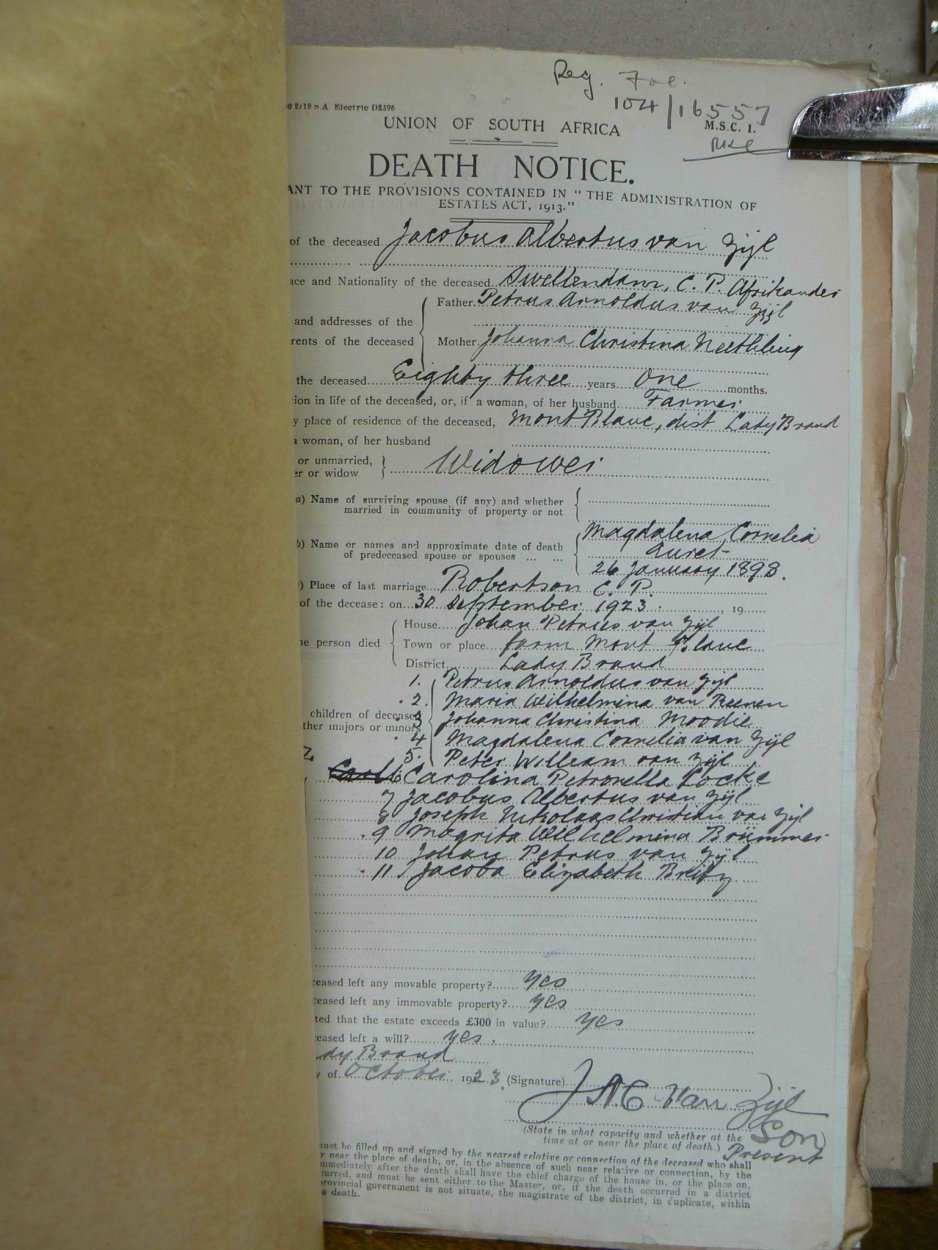 Reg. Fol.
104/16557
2/18 S A Electric D2396
M.S.C. 1.
UNION OF SOUTH AFRICA
DEATH NOTICE.
ANT TO THE PROVISIONS CONTAINED IN "THE ADMINISTRATION OF
ESTATES ACT, 1913."
of the deceased Jacobus Albertus van Zijl
ace and Nationality of the deceased Swellendam, C. P. Afrikander
Father. Petrus Arnoldus van Zijl
and addresses of the
rents of the deceased
Mother. Johanna Christina Neethling
the deceased Eighty three years One months.
ion in life of the deceased, or, if a woman, of her husband Farmer
y place of residence of the deceased, Mont Blanc, dist Lady Brand
a woman, of her husband
or unmarried,
er or widow Widower
a) Name of surviving spouse (if any) and whether
married in community of property or not
b) Name or names and approximate date of death
of predeceased spouse or spouses ... ...
Magdalena Cornelia
Auret
26 January 1898.
) Place of last marriage Robertson C. P.
of the decease: on 30 September 1923 , 19
House Johan Petrus van Zijl
e person died Town or place farm Mont Blanc
District Lady Brand
1. Petrus Arnoldus van Zijl
2. Maria Wilhelmina van Reenen
children of deceased
ther majors or minors
3 Johanna Christina Moodie
4 Magdalena Cornelia van Zijl
5. Peter William van Zijl
6 Carolina Petronella Locke
7 Jacobus Albertus van Zijl
8 Joseph Nikolaas Christian van Zijl
9 Magrita Wilhelmina Brümmer
10 Johan Petrus van Zijl
11 Jacoba Elizabeth
ceased left any movable property? Yes
ceased left any immovable property? Yes
ted that the estate exceeds £300 in value? Yes
ceased left a will? Yes.
dy Brand
y of October 1923. (Signature) Van Zijl
(State in what capacity and whether at the
time at or near the place of death.)
Son
Present
must be filled up and signed by the nearest relative or connection of the deceased who shall
r near the place of death, or, in the absence of such near relative or connection, by the
mmediately after the death shall have the chief charge of the house in, or the place on,
urred, and must be sent either to the Master, or, if the death occurred in a district
provincial government is not situate, the magistrate of the district, in duplicate, within
e death.